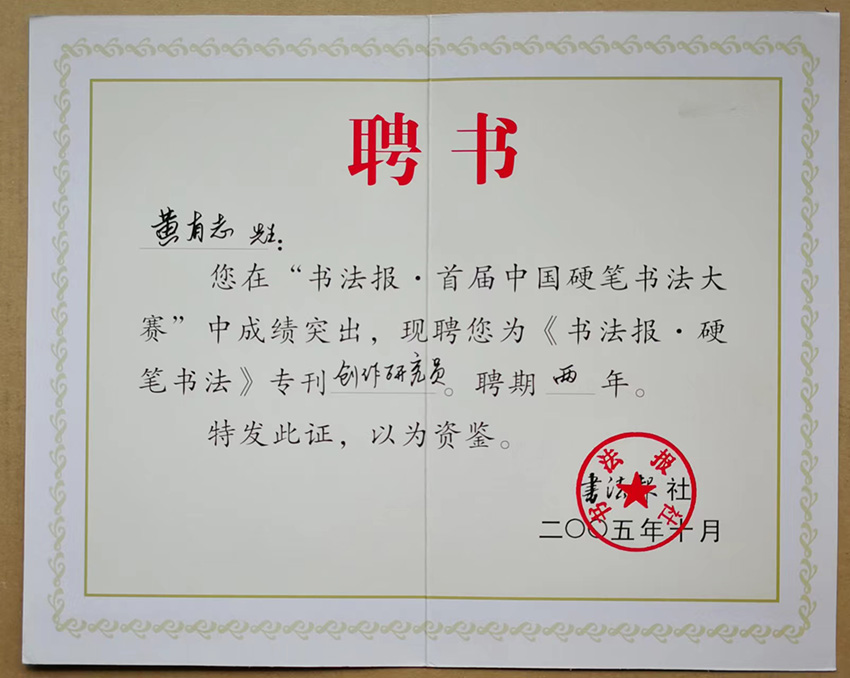 聘书
黄有志 先生：
您在“书法报·首届中国硬笔书法大
赛”中成绩突出，现聘您为《书法报·硬
笔书法》专刊创作研究员。聘期 两 年。
特发此证，以为资鉴。
书法报社
书法报社
二〇〇五年十月